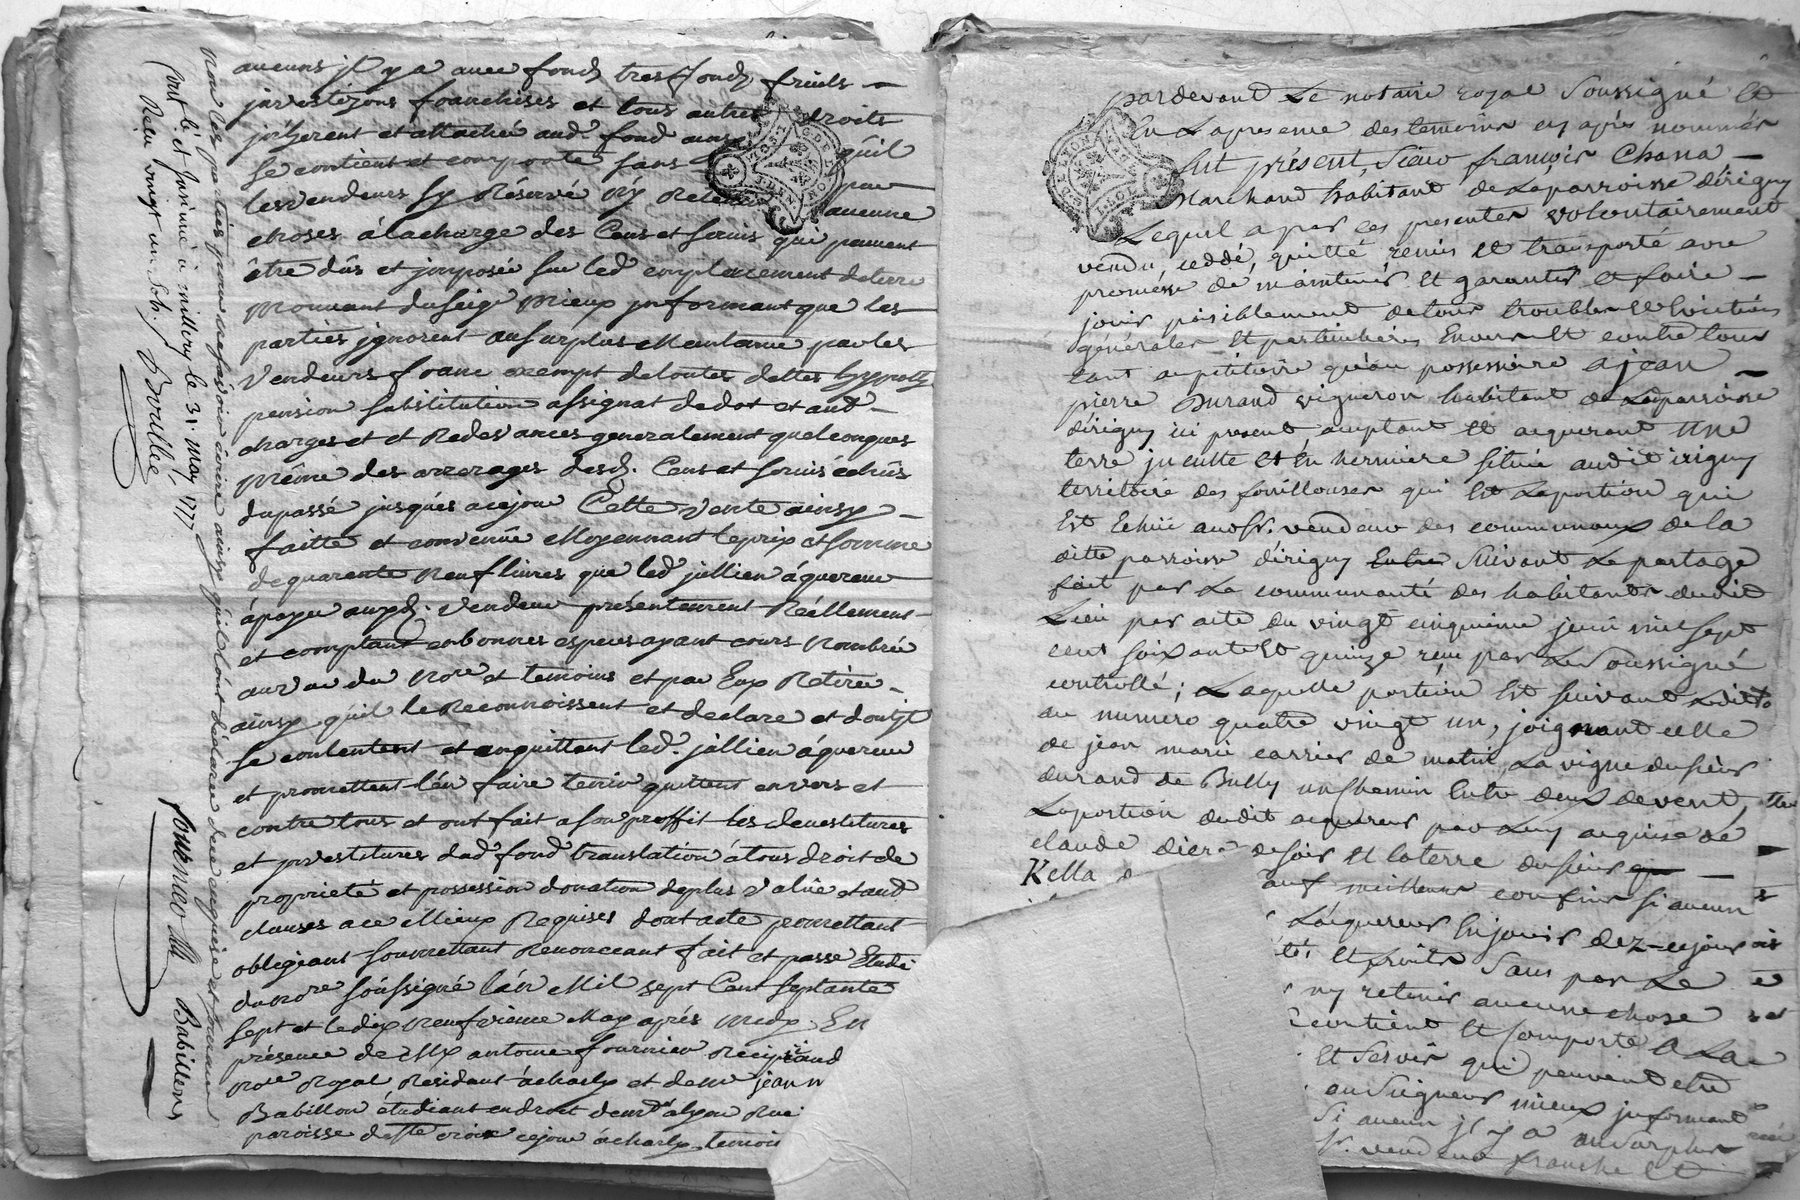 aucuns jl y a avec fonds tresfonds, fruits
jnvestizons franchises et tous autres droits
jnherent et attachés aud. fond ainsy qu'il
se contient et comporte sans par
les vendeurs sy Réservé Ny Retenir aucune
choses á la charge des Cens et servis qui peuvent
être dûs et jmposés sur led. emplacement de terre
Mouvant du seigr Mieux jnformant que les
parties jgnorent au surplus Maintenue par les
Vendeurs franc exempt de toutes dettes hypoth
pension substitution assignat de dot et aud
charges et et Redevances generalement quelconques
Même des arrerages desd. Cens et servis échûs
du passé jusqués a ce jour Cette Vente ainsy
faitte et convenüe Moyennant le prix et somme
de quarante Neuf livres que led jullien áquereur
á payé auxd. Vendeur présentement Réellement
et comptant en bonnes especes ayant cours Nombrée
au vu du Nore et temoins et par Eux Retirée
ainsy qu'il le Reconnoissent et declare et dont jl
se contentent et en quittent led. jullien áquereur
et promettent l'en faire tenir quittent envers et
contre tous et ont fait a son proffit les devestitures
et jnvestitures dud fond translation á tous droit de
proprieté et possession donation de plus Valüe et aud
clauses a ce Mieux Requises dont acte promettant
obligeant soumettant Renonceant fait et passé Etude
du Nore soussigné l'an Mil sept Cent septante
sept et le dix Neufvieme May aprés Midy En
présence de Mx antoine fournier Récipi
Nore Royal Résidant á charly et de mr jean
Babillon étudiant en droit demt á lyon Rue
paroisse de Ste croix ce jour á charly temoin
Non les parties pour ne sçavoir écrire ainsy qu'il l'ont déclaré de ce enquise et
Contlé et Jnsinué á millery le 31. may 1777
Reçu vingt un sols
Boullée
fournier
Babillon
pardevant Le notaire royal Soussigné Et
En La presence des temoins cy aprés nommés
fut présent, Sieur françois Chana
Marchand habitant de La parroisse d'irigny
Lequel a par ces presentes volontairement
vendu, ceddé, quitté remis Et transporté avec
promesse de maintenir Et garantir Et faire
jouir paisiblement de tous troubles Et Evictions
générales Et particulieres Envers Et contre tous
tant au pétitoire qu'au possessoire a jean
pierre Durand vigneron habitant de La parroisse
d'irigny ici present acceptant Et acquerant une
terre jnculte Et En hermiere située audit irigny
territoire des fouillouses qui Est La portion qui
Est Echüe audit sr. vendeur des communaux de la
ditte parroisse d'irigny Suivant Le partage
fait par La communauté des habitants dudit
Lieu par acte du vingt cinquieme juin mil sept
cent soixante Et quinze reçu par Le Soussigné
controllé; Laquelle portion Est suivant Ledit
au numero quatre vingt un, joignant celle
de jean marie carrier de matin La vigne du sieur
durand de Bully un Chemin Entre deux de vent,
La portion dudit acquereur par Luy acquise de
claude de soir Et la terre du sieur
Kella sauf meilleurs confins si aucun
L'acquereur En jouir dez-ce jour
Et fruits Sans par Le
ny retenir aucune chose
contient Et Comporte A La
Et Servis qui peuvent etre
au Seigneur mieux jnformant
Si aucun jl y a au surplus
sr. vendeur franche Et